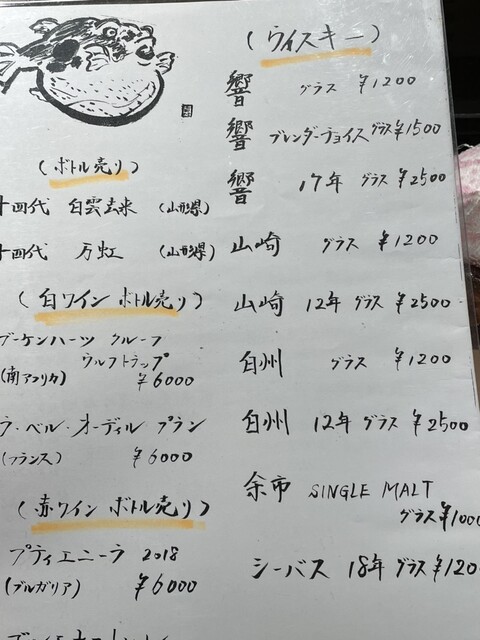 (ボトル売り)
十四代 白雲去来 (山形県)
十四代 万虹 (山形県)
(白ワイン ボトル売り)
ブーケンハーツ クルーフ
ウルフトラップ
(南アフリカ) ¥6000
ラ・ベル・オーディル ブラン
(フランス) ¥6000
(赤ワイン ボトル売り)
プティエニーラ 2018
(ブルガリア) ¥6000
(ウイスキー)
響 グラス ¥1200
響 ブレンダーチョイス グラス ¥1500
響 17年 グラス ¥2500
山崎 グラス ¥1200
山崎 12年 グラス ¥2500
白州 グラス ¥1200
白州 12年 グラス ¥2500
余市 SINGLE MALT
グラス ¥1000
シーバス 18年 グラス ¥120